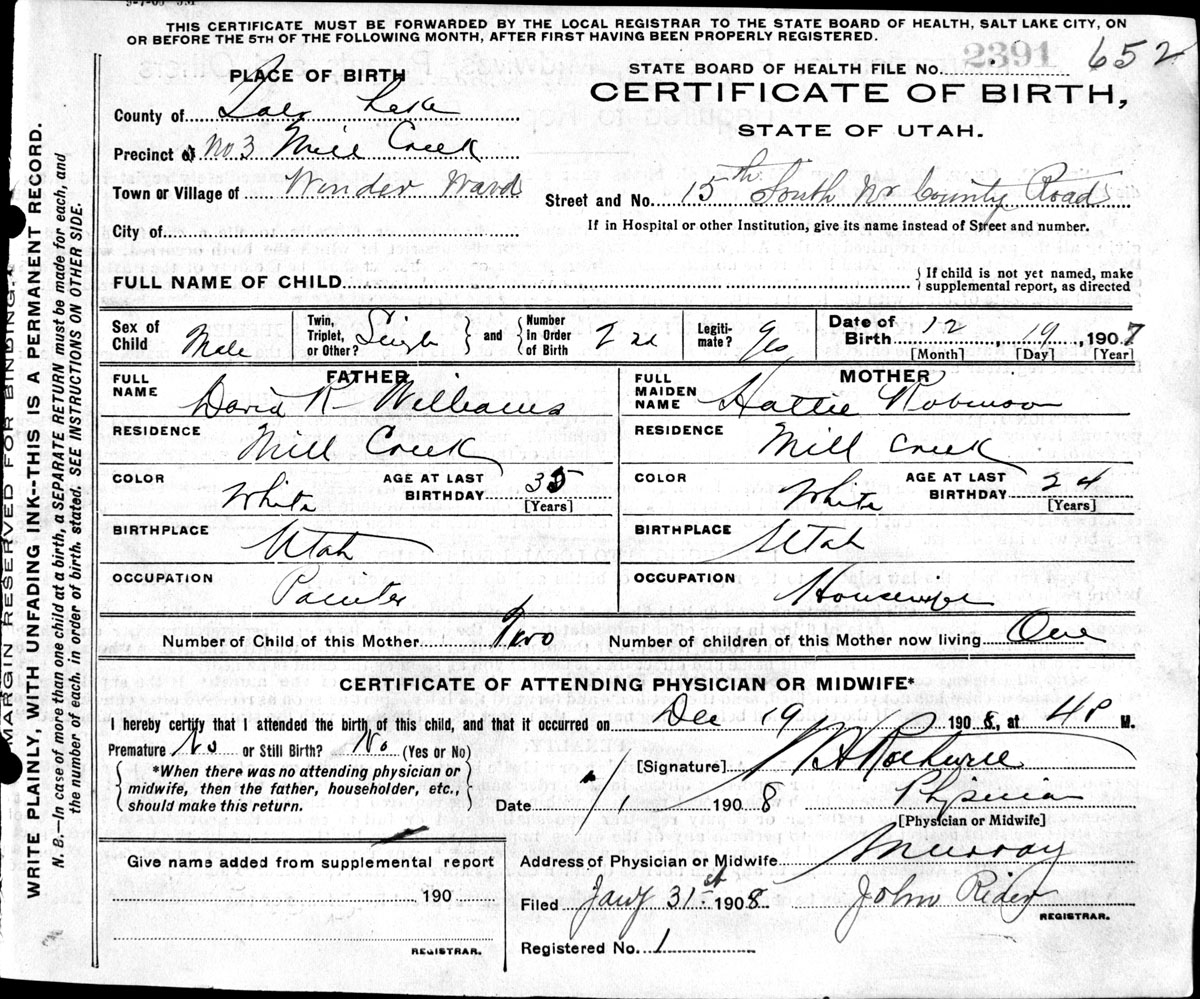 THIS CERTIFICATE MUST BE FORWARDED BY THE LOCAL REGISTRAR TO THE STATE BOARD OF HEALTH, SALT LAKE CITY, ON
OR BEFORE THE 5TH OF THE FOLLOWING MONTH, AFTER FIRST HAVING BEEN PROPERLY REGISTERED.
PLACE OF BIRTH
County of Salt Lake
Precinct of No 3 Mill Creek
Town or Village of Winder Ward
City of
STATE BOARD OF HEALTH FILE No. 2391 652
CERTIFICATE OF BIRTH,
STATE OF UTAH.
Street and No. 15th South Nr County Road
If in Hospital or other Institution, give its name instead of Street and number.
FULL NAME OF CHILD
{ If child is not yet named, make
supplemental report, as directed
Sex of Child Male
Twin, Triplet, or Other? Single } and { Number In Order of Birth 2nd
Legiti-mate? Yes
Date of Birth 12, 19, 1907
[Month] [Day] [Year]
FATHER
FULL NAME David R Williams
RESIDENCE Mill Creek
COLOR White AGE AT LAST BIRTHDAY 35
[Years]
BIRTHPLACE Utah
OCCUPATION Painter
MOTHER
FULL MAIDEN NAME Hattie Robinson
RESIDENCE Mill Creek
COLOR White AGE AT LAST BIRTHDAY 24
[Years]
BIRTHPLACE Utah
OCCUPATION Housewife
Number of Child of this Mother Two Number of children of this Mother now living One
CERTIFICATE OF ATTENDING PHYSICIAN OR MIDWIFE*
I hereby certify that I attended the birth of this child, and that it occurred on Dec 19 1908, at 4 P M.
Premature No or Still Birth? No (Yes or No)
{ *When there was no attending physician or
midwife, then the father, householder, etc.,
should make this return. }
[Signature]
Date 1/1 1908 Physician
[Physician or Midwife]
Give name added from supplemental report
190
REGISTRAR.
Address of Physician or Midwife Murray
Filed Jany 31st 1908 John Rider
REGISTRAR.
Registered No. 1
MARGIN RESERVED FOR BINDING.
WRITE PLAINLY, WITH UNFADING INK--THIS IS A PERMANENT RECORD.
N. B.—In case of more than one child at a birth, a SEPARATE RETURN must be made for each, and
the number of each, in order of birth, stated. SEE INSTRUCTIONS ON OTHER SIDE.